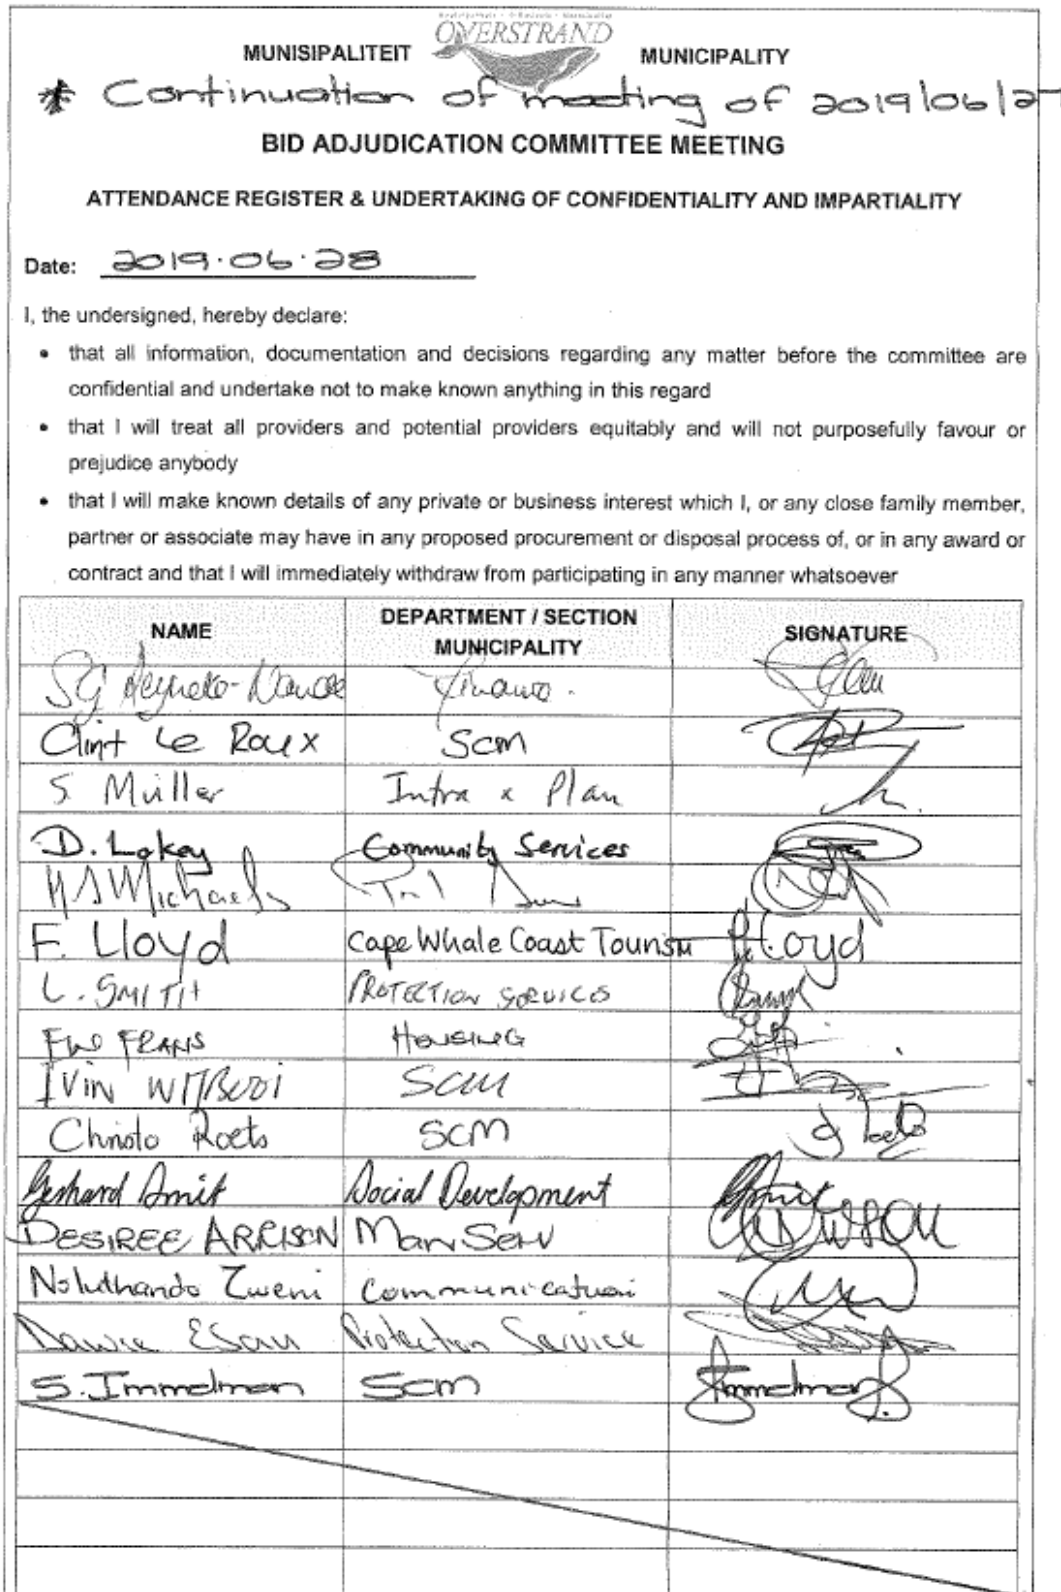 OVERSTRAND
MUNISIPALITEIT MUNICIPALITY
* Continuation of meeting of 2019/06/27
BID ADJUDICATION COMMITTEE MEETING
ATTENDANCE REGISTER & UNDERTAKING OF CONFIDENTIALITY AND IMPARTIALITY
Date: 2019.06.28
I, the undersigned, hereby declare:
• that all information, documentation and decisions regarding any matter before the committee are
confidential and undertake not to make known anything in this regard
• that I will treat all providers and potential providers equitably and will not purposefully favour or
prejudice anybody
• that I will make known details of any private or business interest which I, or any close family member,
partner or associate may have in any proposed procurement or disposal process of, or in any award or
contract and that I will immediately withdraw from participating in any manner whatsoever
NAME DEPARTMENT / SECTION MUNICIPALITY SIGNATURE
SG
Clint Le Roux SCM
S. Müller Infra & Plan
D. Lakey Community Services
Michaels
F. Lloyd Cape Whale Coast Tourism Lloyd
L. SMITH PROTECTION SERVICES
FRANS HOUSING
IVIN WITBOOI SCM
Christo Roets SCM
Gerhard Smit Social Development
DESIREE ARRISON Man Serv
Noluthando Zweni Communication
Dawie Esau Protection Service
S. Immelman SCM Immelman